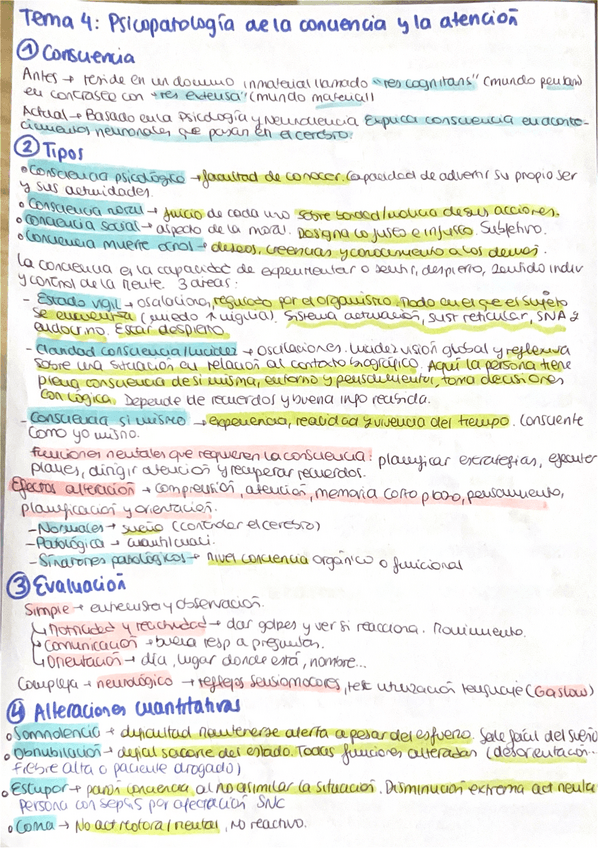 Tema 4: Psicopatología de la conciencia y la atención
① Consciencia
Antes → reside en un dominio inmaterial llamado "res cognitans" (mundo pensan)
en contraste con "res extensa" (mundo material)
Actual → Basado en la Psicología y Neurociencia. Explica consciencia en aconte-
cimientos neuronales que pasan en el cerebro.
② Tipos
• Consciencia psicológica → facultad de conocer. Capacidad de advertir su propio ser
y sus actividades.
• Consciencia moral → juicio de cada uno sobre bondad/malicia de sus acciones.
• Conciencia social → aspecto de la moral. Designa lo justo e injusto. Subjetivo.
• Conciencia muerte otros → deseos, creencias y conocimiento a los demás.
La conciencia es la capacidad de experimentar o sentir, despierto, sentido indiv
y control de la mente. 3 áreas:
- Estado vigil → oscilaciones, regulado por el organismo. Modo en el que el sujeto
se encuentra (sueño ↑ vigilia). Sistema activación, sust reticular, SNA y
endocrino. Estar despierto
- Claridad consciencia/lucidez → oscilaciones. Lucidez visión global y reflexiva
sobre una situación en relación al contexto biográfico. Aquí la persona tiene
plena consciencia de si misma, entorno y pensamientos, toma decisiones
con lógica. Depende de recuerdos y buena info recibida.
- Consciencia si mismo → experiencia, realidad y vivencia del tiempo. Consciente
como yo mismo.
Funciones mentales que requieren la consciencia: planificar estrategias, ejecutar
planes, dirigir atención y recuperar recuerdos.
Efectos alteración → comprensión, atención, memoria corto plazo, pensamiento,
planificación y orientación.
- Normales → sueño (controlar el cerebro)
- Patológica → cuanti/cuali.
- Síndromes patológicos → nivel conciencia orgánico o funcional
③ Evaluación
Simple → entrevista y observación.
↳ Motricidad y reactividad → dar golpes y ver si reacciona. Movimiento.
↳ Comunicación → buena resp a preguntas.
↳ Orientación → día, lugar donde está, nombre...
Compleja → neurológico → reflejos sensiomotores, test utilización lenguaje (Gaslow)
④ Alteraciones cuantitativas
• Somnolencia → dificultad mantenerse alerta a pesar del esfuerzo. Sale fácil del sueño
• Obnubilación → difícil sacarle del estado. Todas funciones alteradas (desorientación...
fiebre alta o paciente drogado)
• Estupor → conciencia al no asimilar la situación. Disminución extrema act mental
Persona con sepsis por afectación SNC
• Coma → No act motora/mental, No reactivo.